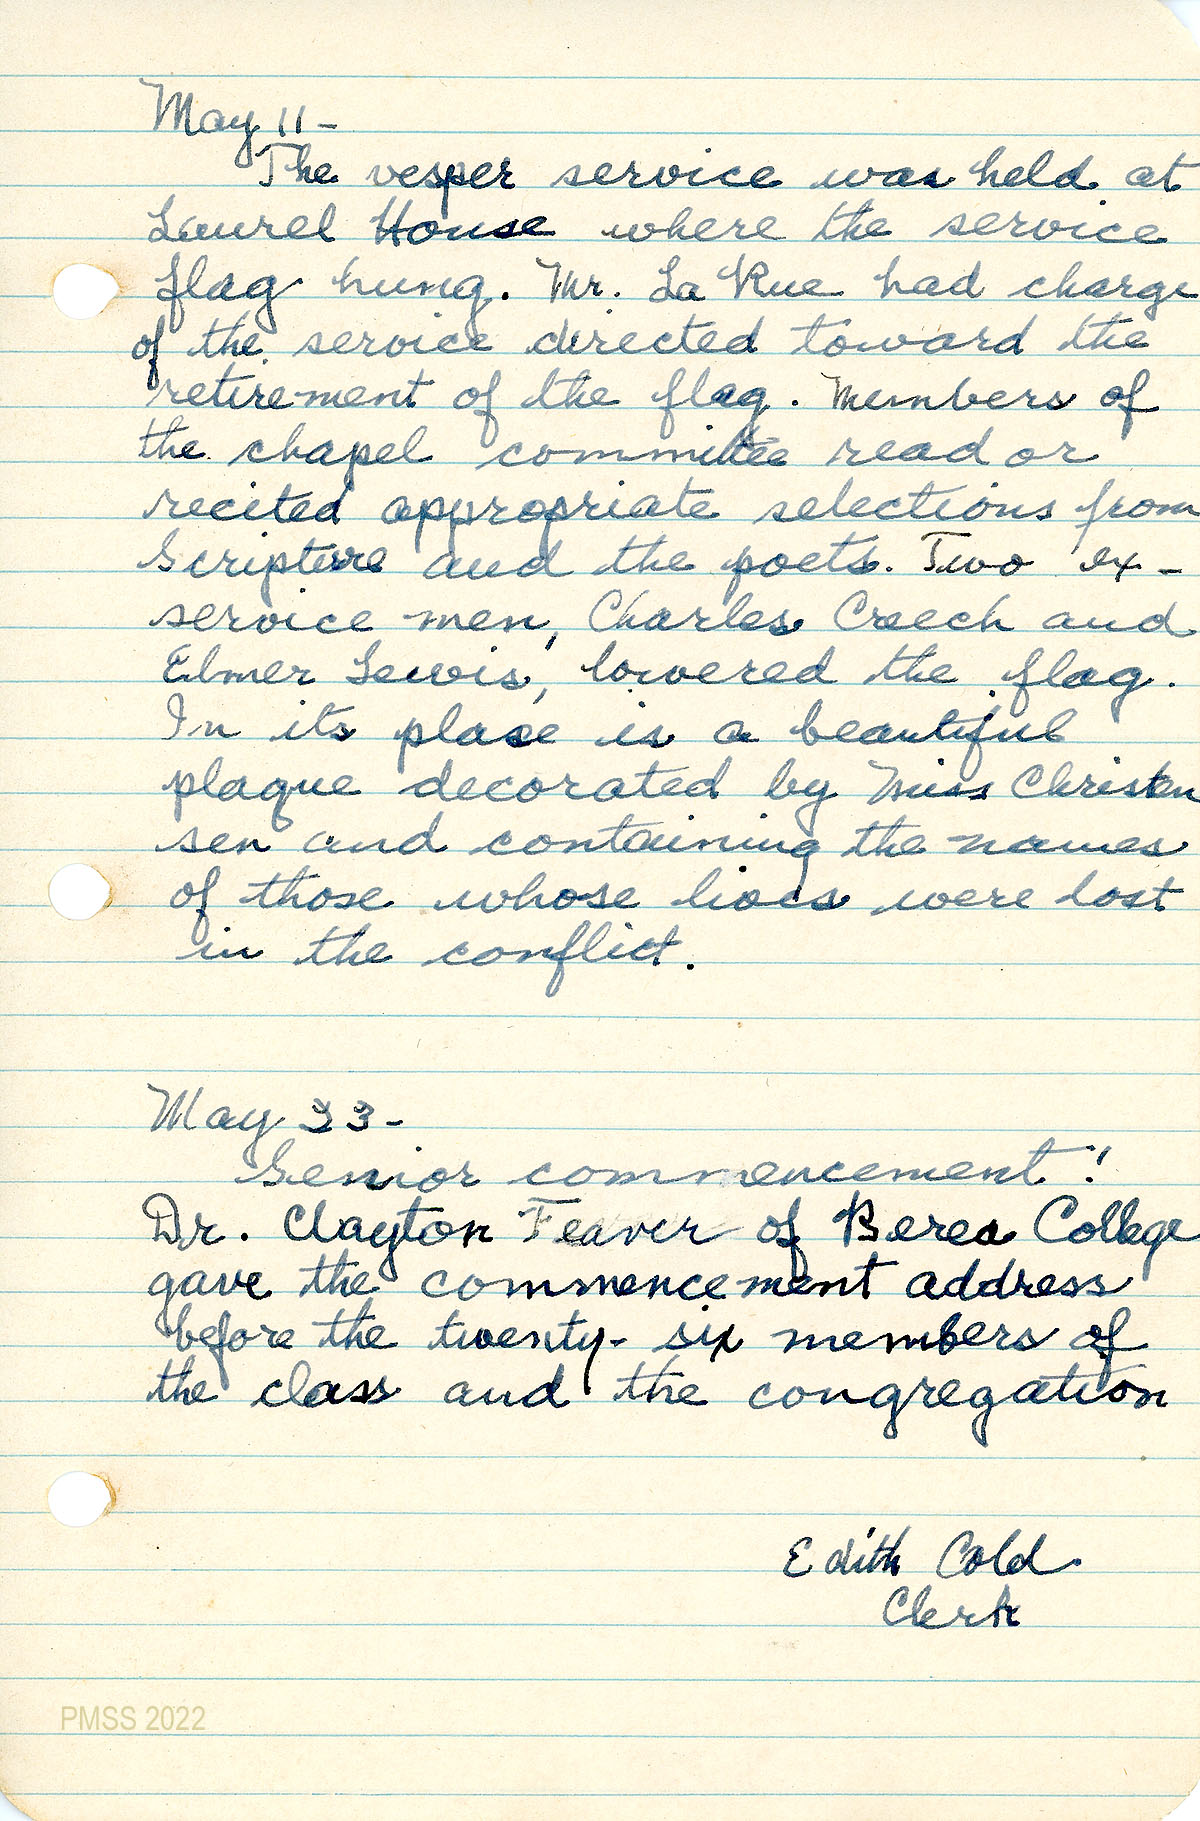 May 11 -
The vesper service was held at
Laurel House where the service
flag hung. Mr. La Rue had charge
of the service directed toward the
retirement of the flag. Members of
the chapel committee read or
recited appropriate selections from
Scripture and the poets. Two ex-
service men, Charles Creech and
Elmer Lewis, lowered the flag.
In its place is a beautiful
plaque decorated by Miss Christen
sen and containing the names
of those whose lives were lost
in the conflict.
May 23 -
Senior commencement!
Dr. Clayton Feaver of Berea College
gave the commencement address
before the twenty-six members of
the class and the congregation
Edith Cold
Clerk
PMSS 2022